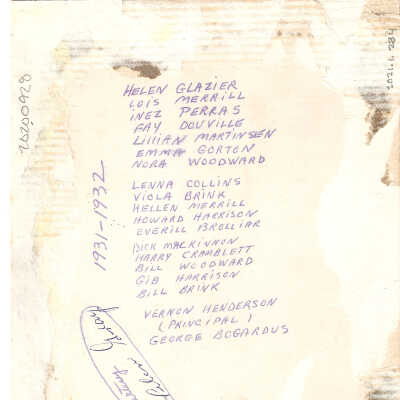 HELEN GLAZIER
LOIS MERRILL
INEZ PERRAS
FAY DOUVILLE
LILLIAN MARTINSEN
EMMA GORTON
NORA WOODWARD
LENNA COLLINS
VIOLA BRINK
HELLEN MERRILL
HOWARD HARRISON
EVERILL BROLLIAR
DICK MACKINNON
HARRY CRAMBLETT
BILL WOODWARD
GIB HARRISON
BILL BRINK
VERNON HENDERSON
(PRINCIPAL)
GEORGE BOGARDUS
1931-1932
20200928